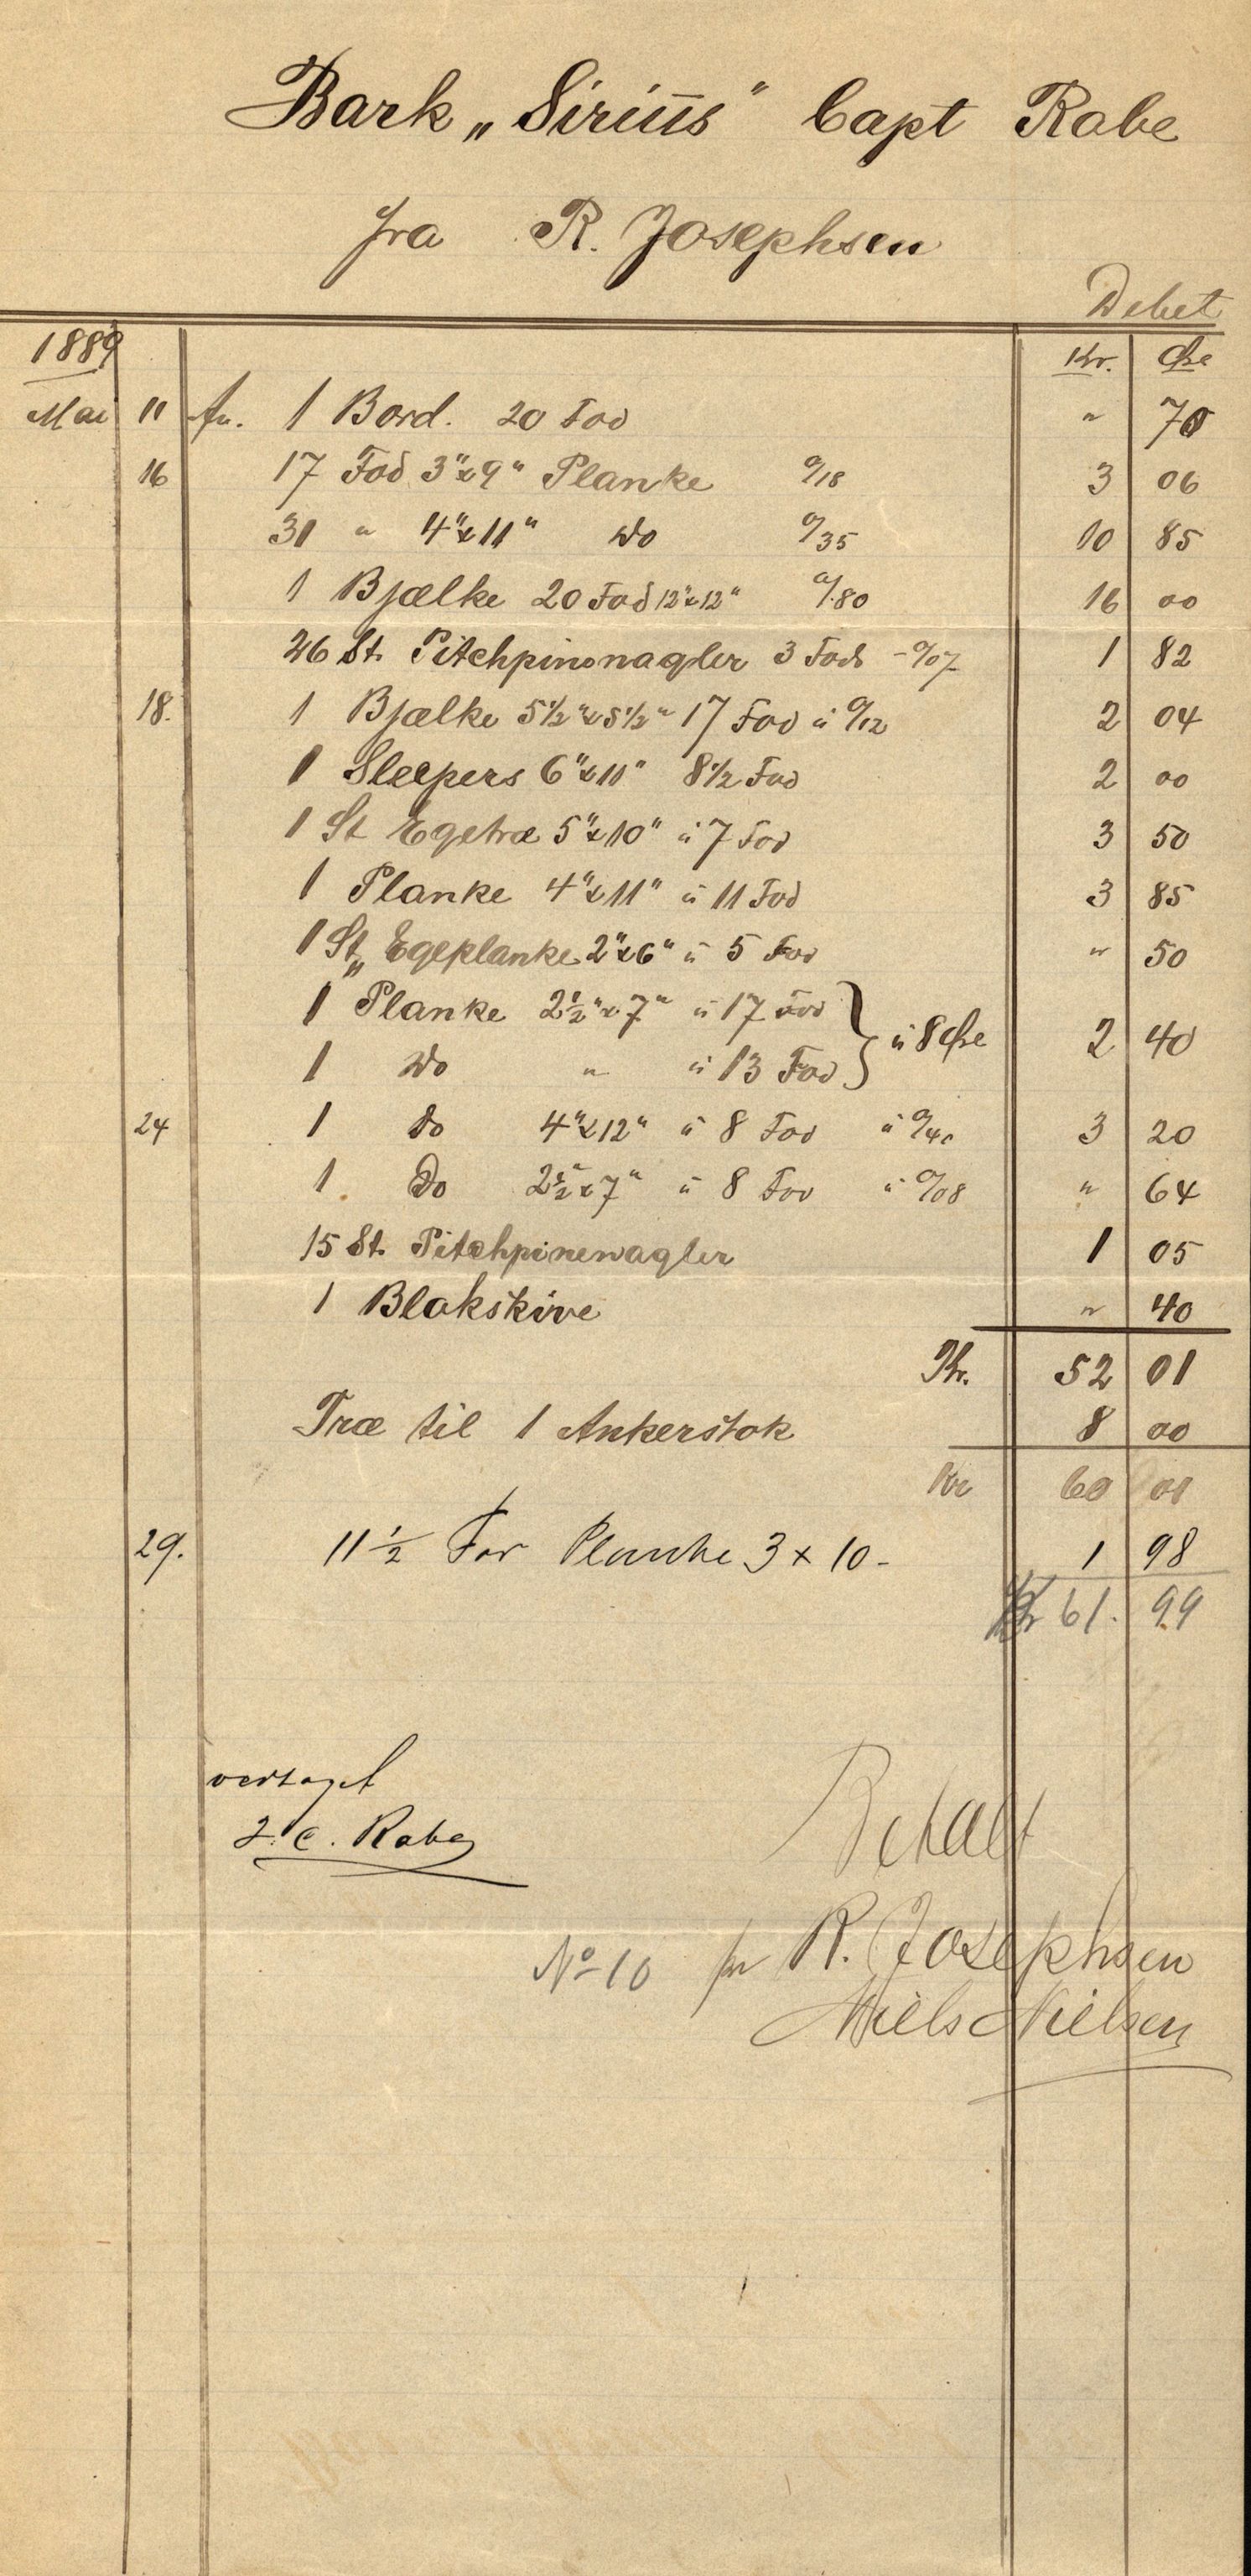 Bark „Sirius" Capt Rabe
fra R. Josephsen
Debet
1889 Kr. Øre
Mai 11 An. 1 Bord. 20 Fod " 70
16 17 Fod 3"x9" Planke a/18 3 06
31 " 4"x11" Do a/35 10 85
1 Bjælke 20 Fod 12"x12" a/.80 16 00
26 St. Pitchpinenagler 3 Fods - a/07 1 82
18. 1 Bjælke 5½"x5½" 17 Fod á a/12 2 04
1 Sleepers 6"x10" 8½ Fod 2 00
1 St Egetræ 5"x10" á 7 Fod 3 50
1 Planke 4"x11" á 11 Fod 3 85
1 St„ Egeplanke 2"x6" á 5 Fod " 50
1 Planke 2½"x7" á 17 Fod
1 Do " á 13 Fod } á 8 Øre 2 40
24 1 Do 4"x12" á 8 Fod á a/40 3 20
1. Do 2½"x7" á 8 Fod á a/08 " 64
15 St. Pitchpinenagler 1 05
1 Blokskive " 40
Kr. 52 01
Træ til 1 Ankerstok 8 00
Kr 60 01
29. 11½ Fod Planke 3 x 10 - 1 98
Kr 61. 99
vedtaget
J. C. Rabe
Betalt
No 10 pr R. Josephsen
Niels Nielsen